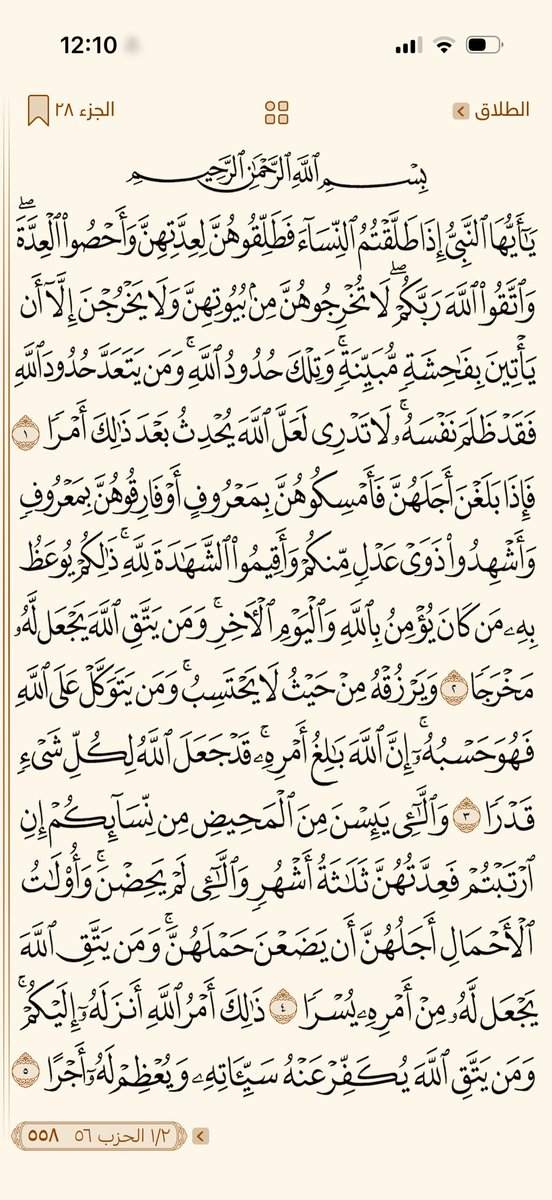 12:10
الطلاق
الجزء ٢٨
بِسْمِ اللَّهِ الرَّحْمَٰنِ الرَّحِيمِ
يَٰٓأَيُّهَا ٱلنَّبِيُّ إِذَا طَلَّقْتُمُ ٱلنِّسَآءَ فَطَلِّقُوهُنَّ لِعِدَّتِهِنَّ وَأَحْصُوا۟ ٱلْعِدَّةَ ۖ
وَٱتَّقُوا۟ ٱللَّهَ رَبَّكُمْ ۖ لَا تُخْرِجُوهُنَّ مِنۢ بُيُوتِهِنَّ وَلَا يَخْرُجْنَ إِلَّآ أَن
يَأْتِينَ بِفَٰحِشَةٍ مُّبَيِّنَةٍ ۚ وَتِلْكَ حُدُودُ ٱللَّهِ ۚ وَمَن يَتَعَدَّ حُدُودَ ٱللَّهِ
فَقَدْ ظَلَمَ نَفْسَهُۥ ۚ لَا تَدْرِى لَعَلَّ ٱللَّهَ يُحْدِثُ بَعْدَ ذَٰلِكَ أَمْرًا ١
فَإِذَا بَلَغْنَ أَجَلَهُنَّ فَأَمْسِكُوهُنَّ بِمَعْرُوفٍ أَوْ فَارِقُوهُنَّ بِمَعْرُوفٍ
وَأَشْهِدُوا۟ ذَوَىْ عَدْلٍ مِّنكُمْ وَأَقِيمُوا۟ ٱلشَّهَٰدَةَ لِلَّهِ ۚ ذَٰلِكُمْ يُوعَظُ
بِهِۦ مَن كَانَ يُؤْمِنُ بِٱللَّهِ وَٱلْيَوْمِ ٱلْـَٔاخِرِ ۚ وَمَن يَتَّقِ ٱللَّهَ يَجْعَل لَّهُۥ
مَخْرَجًا ٢ وَيَرْزُقْهُ مِنْ حَيْثُ لَا يَحْتَسِبُ ۚ وَمَن يَتَوَكَّلْ عَلَى ٱللَّهِ
فَهُوَ حَسْبُهُۥٓ ۚ إِنَّ ٱللَّهَ بَٰلِغُ أَمْرِهِۦ ۚ قَدْ جَعَلَ ٱللَّهُ لِكُلِّ شَىْءٍ
قَدْرًا ٣ وَٱلَّٰٓـِٔى يَئِسْنَ مِنَ ٱلْمَحِيضِ مِن نِّسَآئِكُمْ إِنِ
ٱرْتَبْتُمْ فَعِدَّتُهُنَّ ثَلَٰثَةُ أَشْهُرٍ وَٱلَّٰٓـِٔى لَمْ يَحِضْنَ ۚ وَأُو۟لَٰتُ
ٱلْأَحْمَالِ أَجَلُهُنَّ أَن يَضَعْنَ حَمْلَهُنَّ ۚ وَمَن يَتَّقِ ٱللَّهَ
يَجْعَل لَّهُۥ مِنْ أَمْرِهِۦ يُسْرًا ٤ ذَٰلِكَ أَمْرُ ٱللَّهِ أَنزَلَهُۥٓ إِلَيْكُمْ ۚ
وَمَن يَتَّقِ ٱللَّهَ يُكَفِّرْ عَنْهُ سَيِّـَٔاتِهِۦ وَيُعْظِمْ لَهُۥٓ أَجْرًا ٥
١/٢ الحزب ٥٦ ٥٥٨